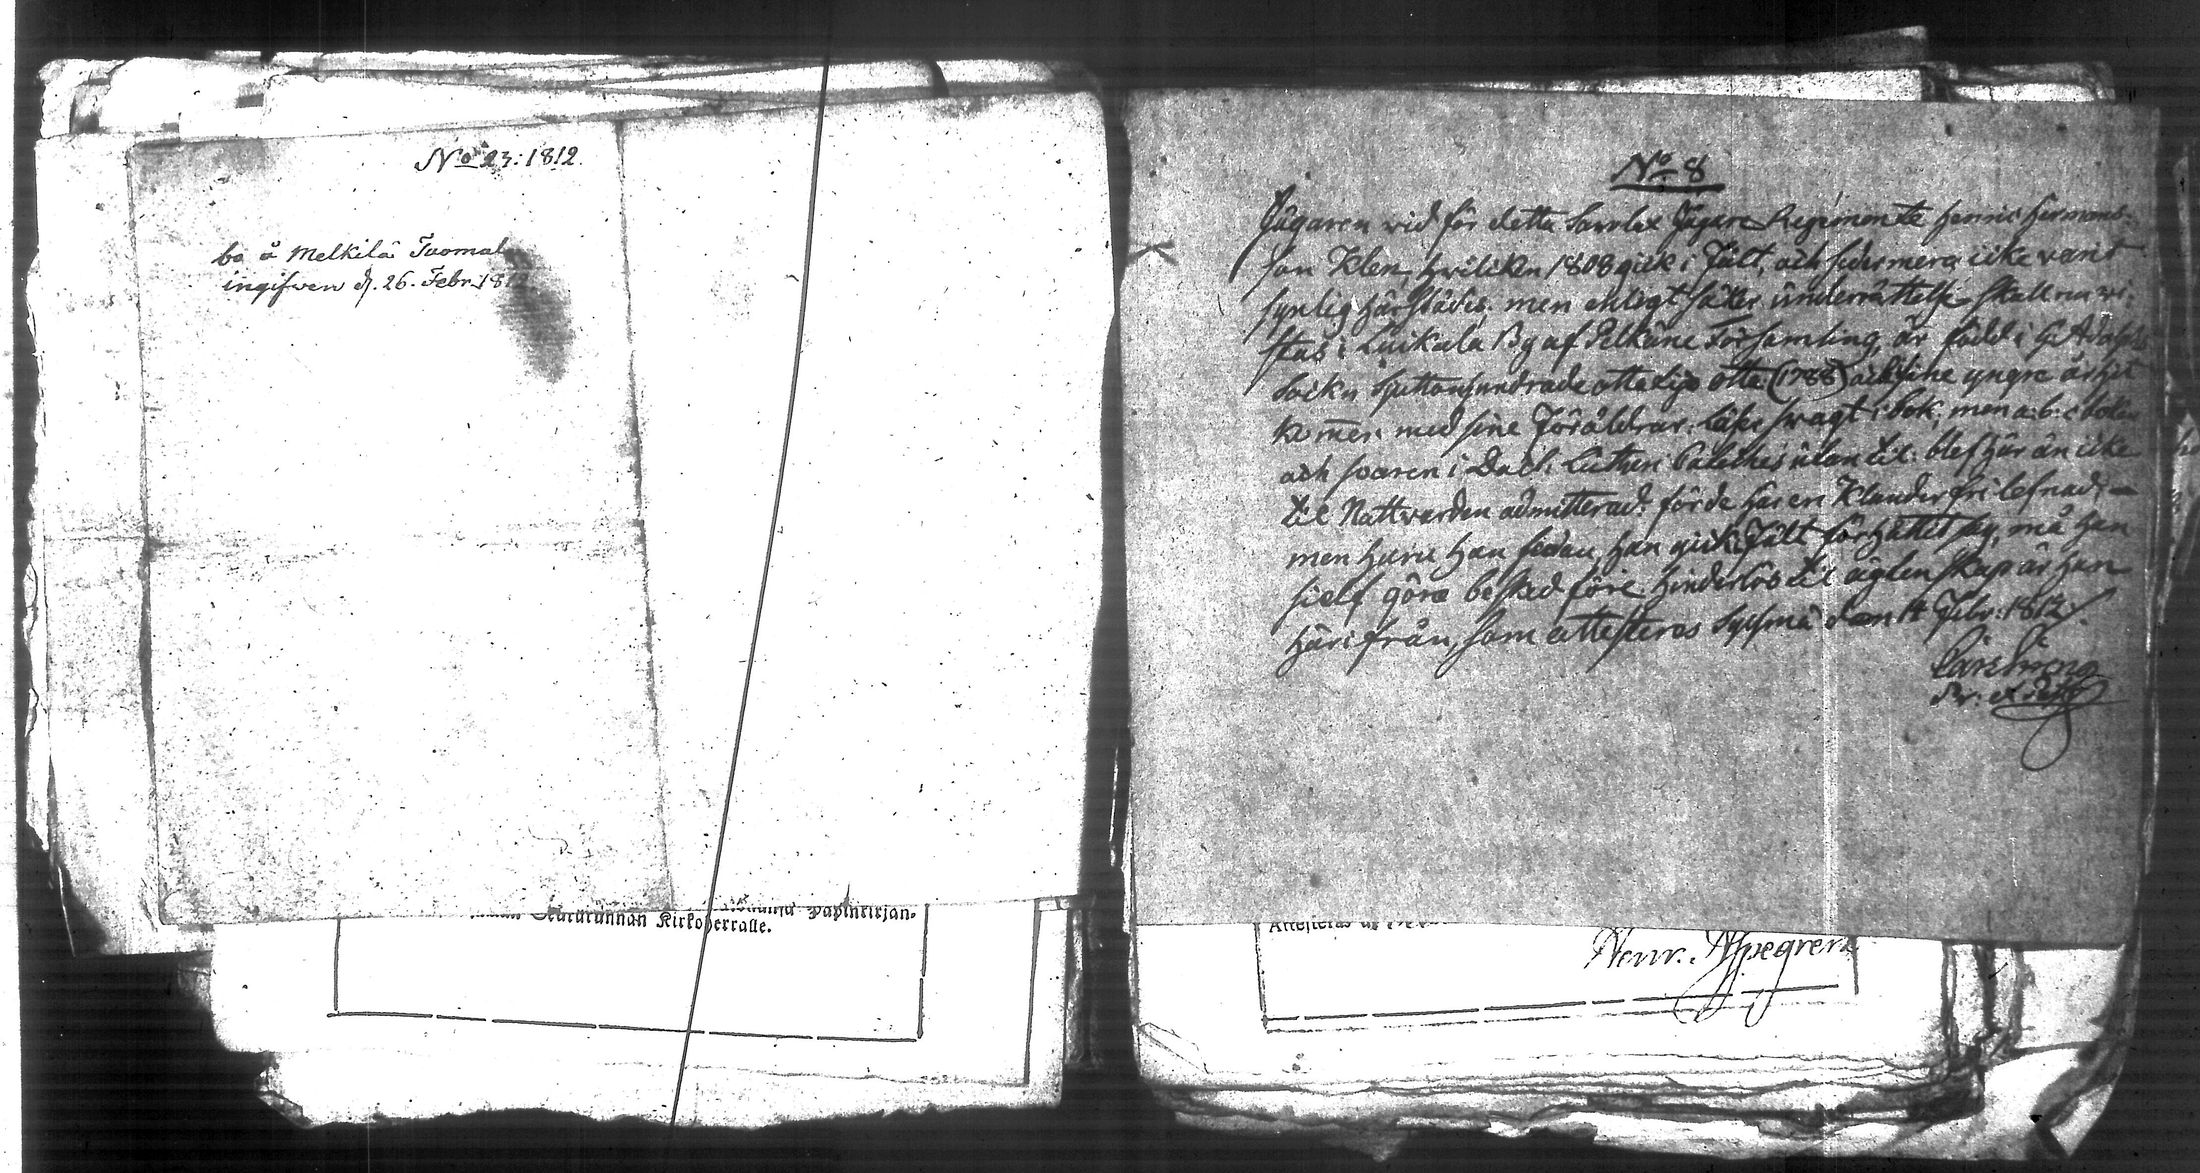 No 23: 1812.
bo å Melkilä Tuomal
ingifven d. 26. Febr. 1812
Kirkoherralle.
No 8
Jägaren vid för detta Savolax Jägare Regimente Henric Hermans-
son Klen, hvilken 1808 gick i Fält, och sedermera icke varit
synlig härstädes, men enligt säker underrättelse skall nu vi-
stas i Luikala By af Pelkäne Församling, är född i G. Adolphs
Sokn sjuttonhundrade ottatijo otta (1788) yngre år hit
kommen med sine Föräldrar, läser svagt i bok, men a.b.c. boken
och svaren i Doct. Lutheri Cateches utan til. blef här än icke
til Nattvarden admitterad. förde här en klanderfri lefnad, -
men huru han sedan han gick i Fält förhållit sig, må han
sielf göra besked före. hinderlös til ägtenskap är han
härifrån, som attesteras Sysmä den 14 Febr: 1812.
Lars
Attesteras af
Henr. Asspegren